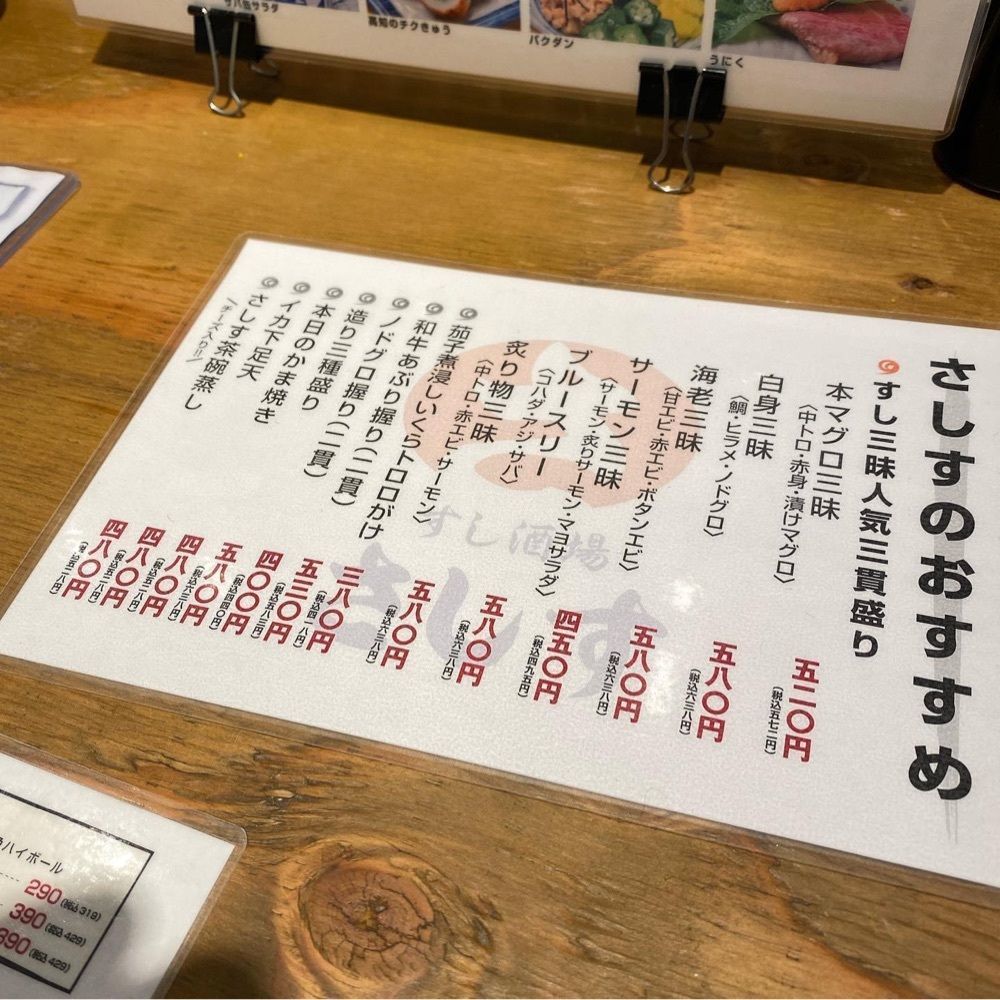 サバ缶サラダ
高知のチクきゅう
バクダン
うにく
さしすのおすすめ
すし三昧人気三貫盛り
本マグロ三昧
〈中トロ・赤身・漬けマグロ〉
五二〇円
(税込五七二円)
白身三昧
〈鯛・ヒラメ・ノドグロ〉
五八〇円
(税込六三八円)
海老三昧
〈甘エビ・赤エビ・ボタンエビ〉
五八〇円
(税込六三八円)
サーモン三昧
〈サーモン・炙りサーモン・マヨサラダ〉
四五〇円
(税込四九五円)
ブルースリー
〈コハダ・アジ・サバ〉
五八〇円
(税込六三八円)
炙り物三昧
〈中トロ・赤エビ・サーモン〉
五八〇円
(税込六三八円)
茄子煮浸しいくらトロロがけ
三八〇円
(税込四一八円)
和牛あぶり握り(二貫)
五三〇円
(税込五八三円)
ノドグロ握り(二貫)
四〇〇円
(税込四四〇円)
造り三種盛り
五八〇円
(税込六三八円)
本日のかま焼き
四八〇円
(税込五二八円)
イカ下足天
四八〇円
(税込五二八円)
さしす茶碗蒸し
\チーズ入り!!/
四八〇円
(税込五二八円)
すし酒場
さしす
ハイボール
290(税込319)
390(税込429)
390(税込429)